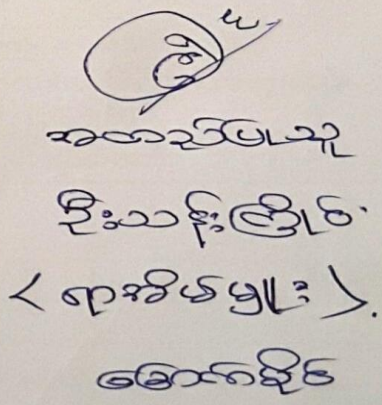 အတည်ပြုသူ
ဦးသန်းကြိုင်
<ရာအိမ်မှူး>.
မြောက်ပိုင်